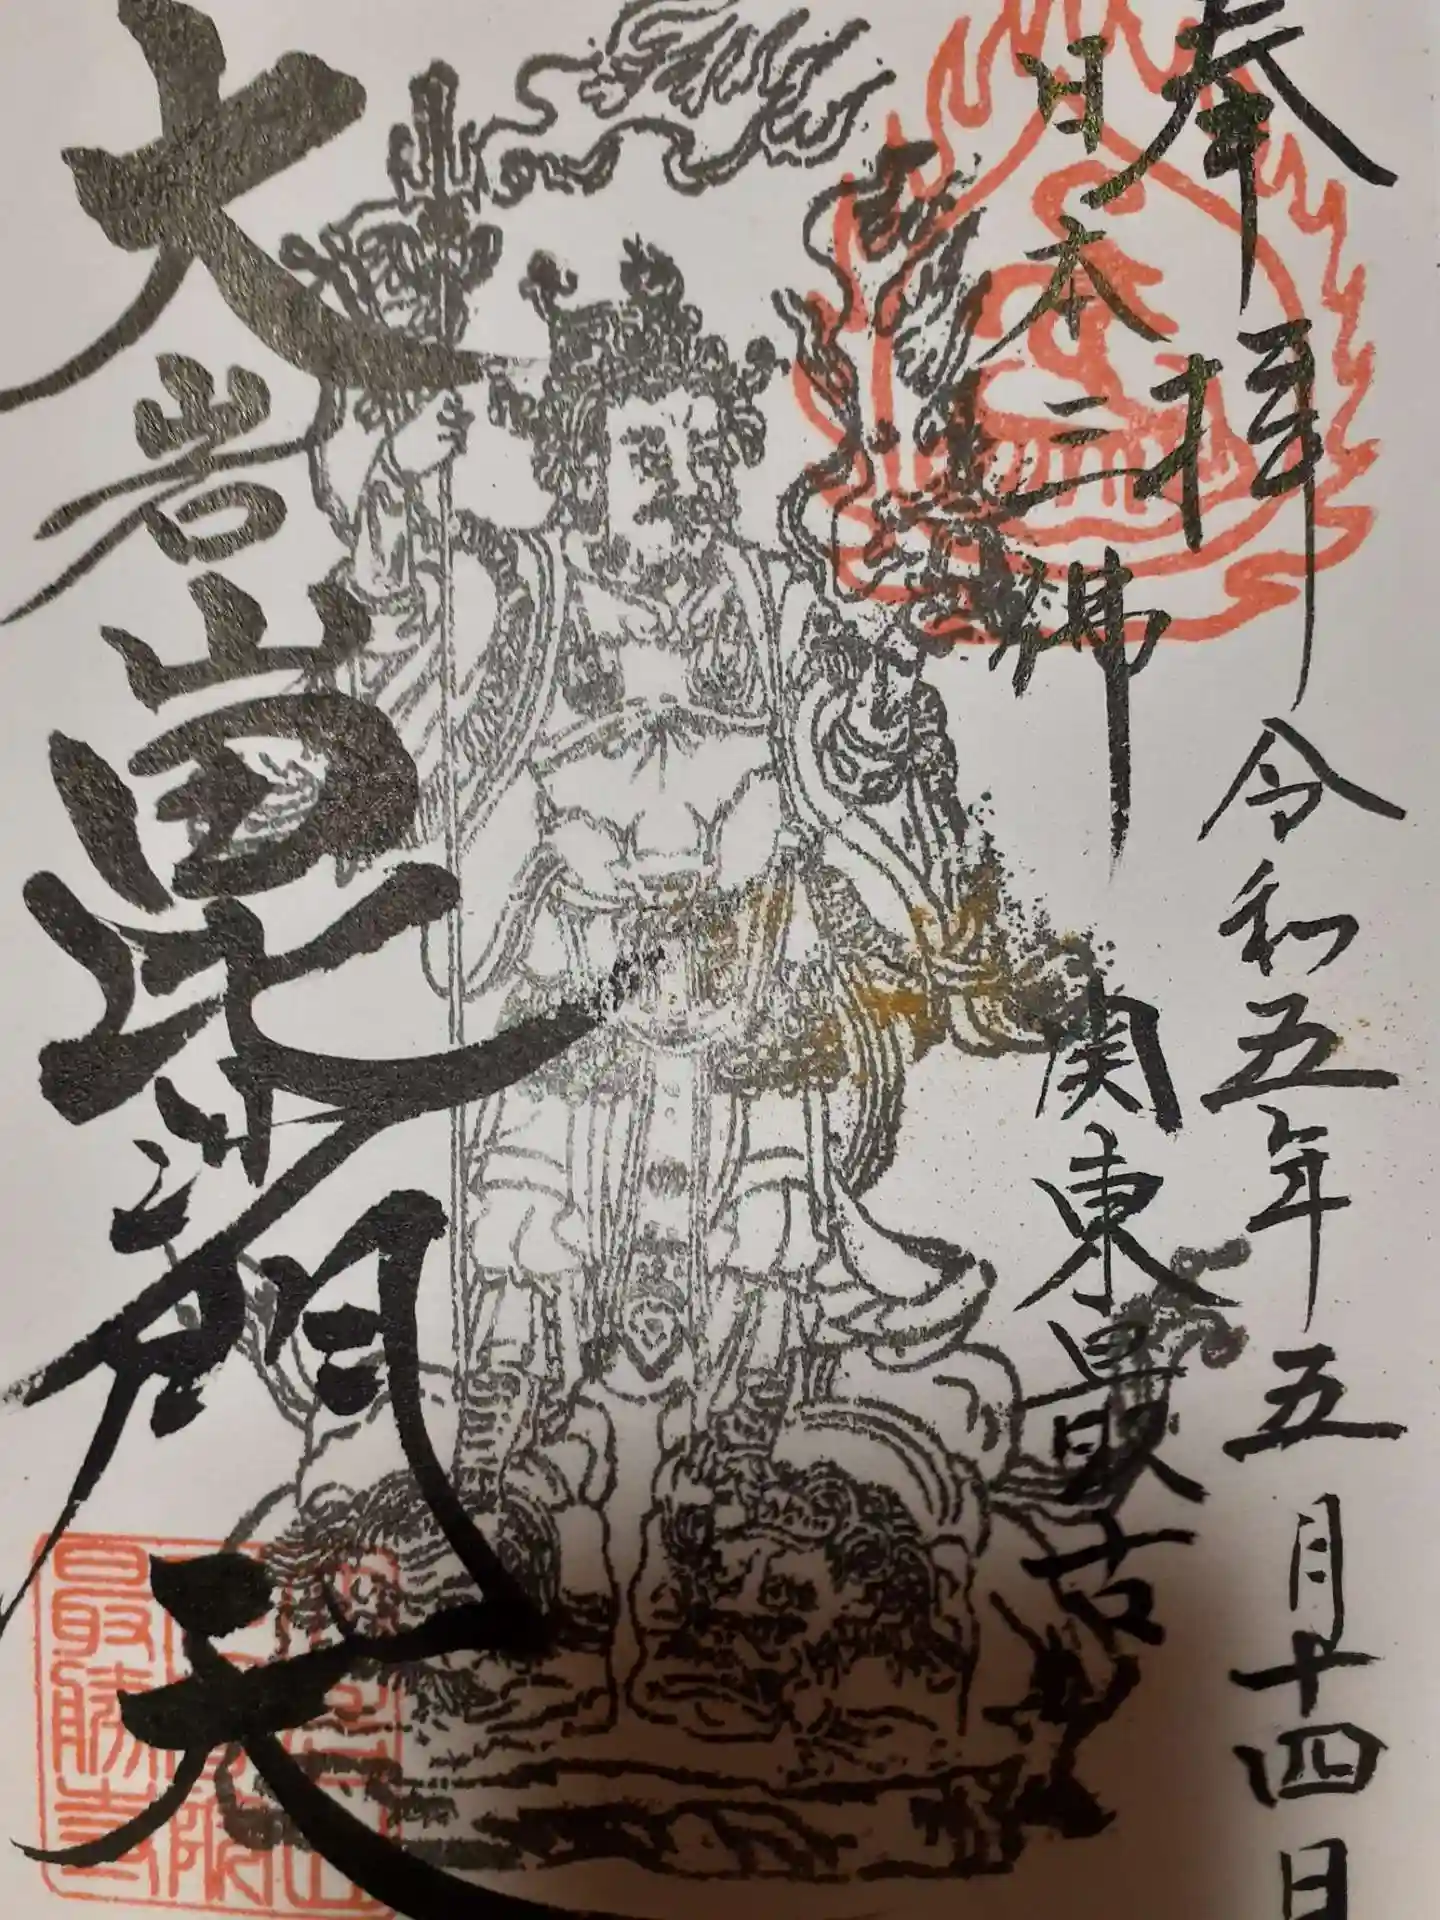 奉拝 令和五年五月十四日
日本三
関東最古
大岩山毘沙門天
最勝寺